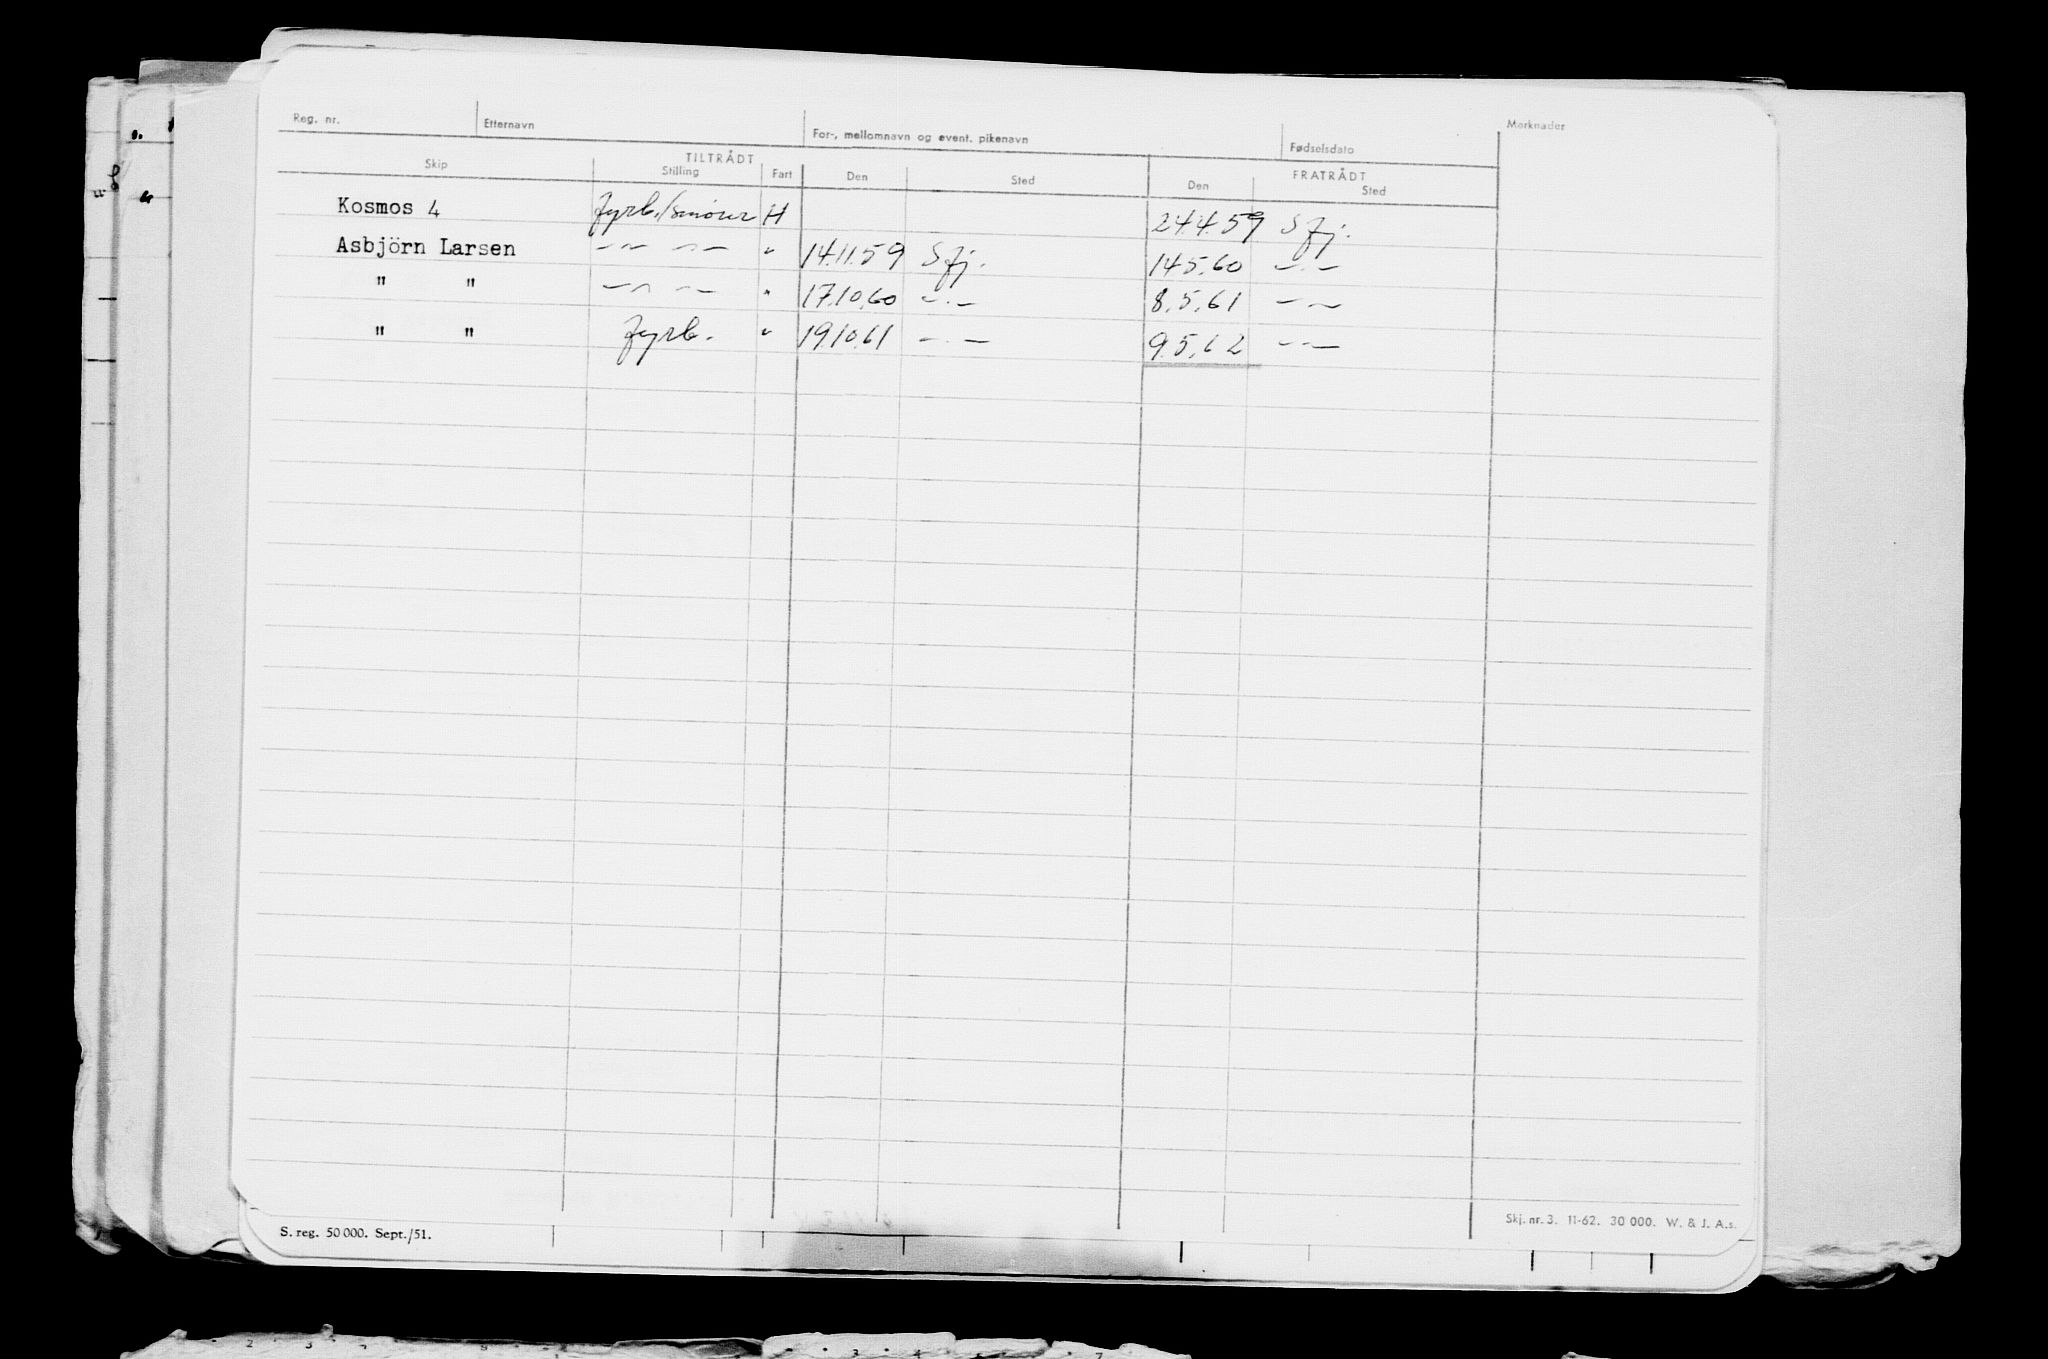 Reg. nr. Etternavn For-, mellomnavn og event. pikenavn Fødselsdato Merknader
TILTRÅDT FRATRÅDT
Skip Stilling Fart Den Sted Den Sted
Kosmos 4 fyrb./smörer H 24.4.59 S fj.
Asbjörn Larsen -"- -"- " 14.11.59 S fj. 14.5.60 -"-
" " -"- -"- " 17.10.60 -"- 8.5.61 -"-
" " fyrb. " 19.10.61 -"- 9.5.62 -"-
Skj. nr. 3. 11-62. 30 000. W. & J. A.s.
S. reg. 50 000. Sept./51.